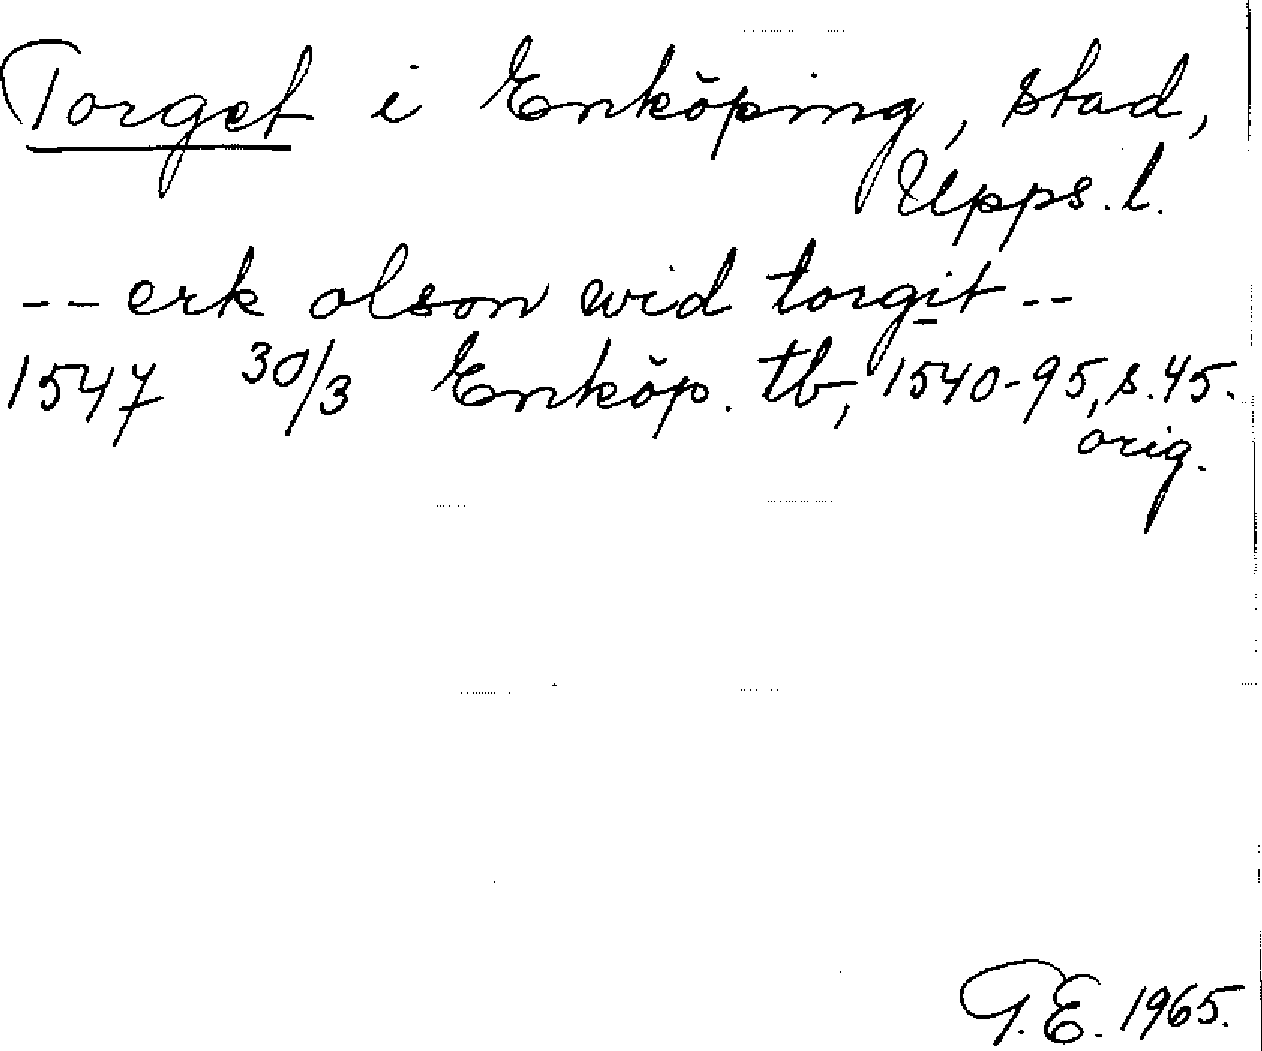 Torget i Enköping, stad,
Upps. l.
-- erk olson wid torgit --
1547 30/3 Enköp. tb, 1540-95, s. 45.
orig.
T.E. 1965.